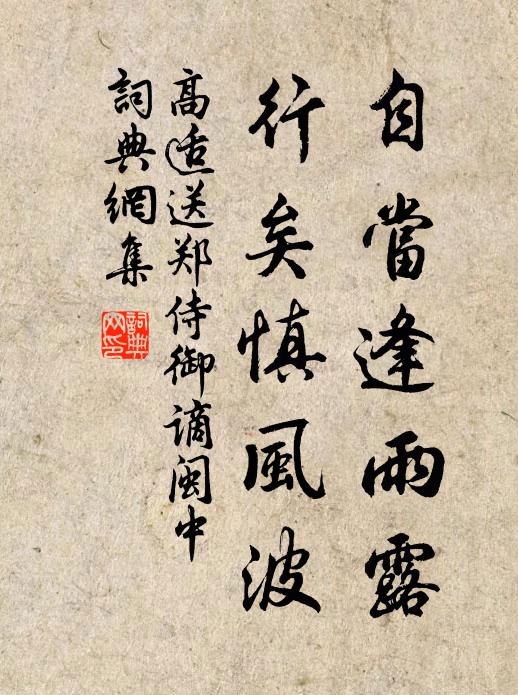 自當逢雨露
行矣慎風波
高适送郑侍御谪闽中
詞典網集
詞典
网印